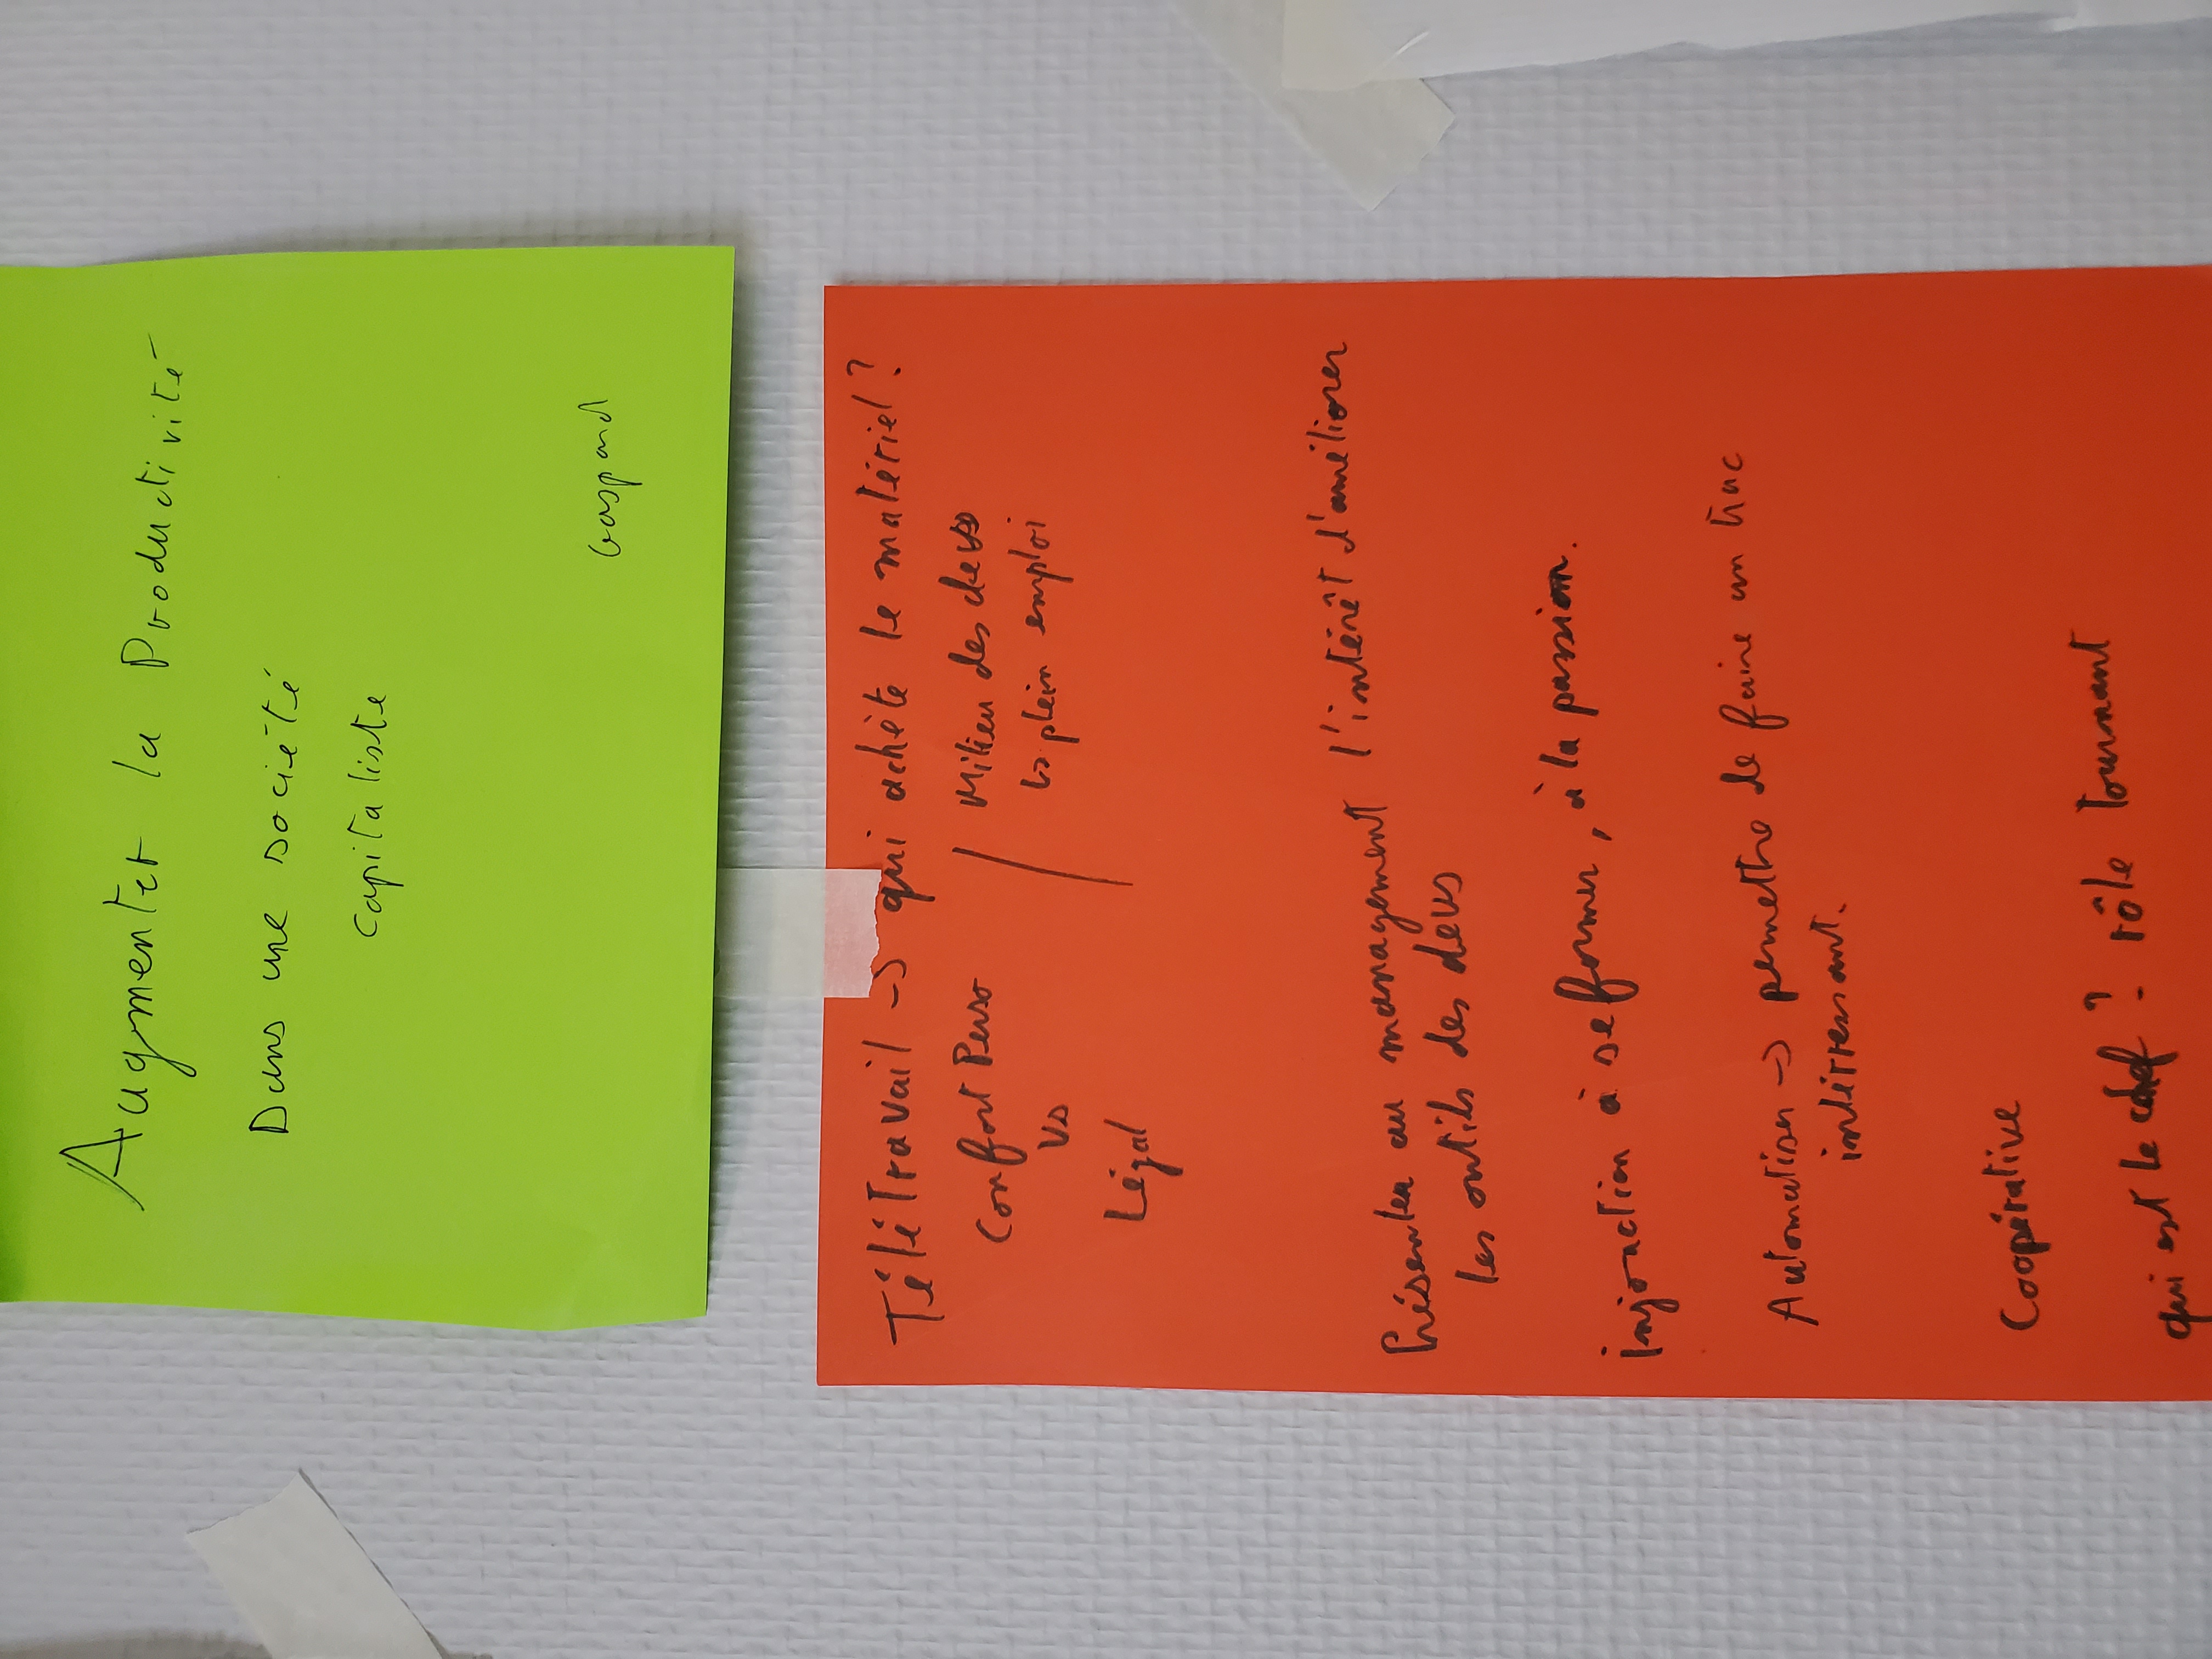 Augmenter la Productivité
Dans une société
capitaliste
Gaspard
Télétravail -> qui achète le matériel ?
Confort Perso
vs
Légal
/
Milieu des devs
↳ plein emploi
Présenter au management l'intérêt d'améliorer
les outils des devs
injonction à se former, à la passion.
Automatiser -> permettre de faire un truc
intérressant.
Coopérative
qui est le chef ? rôle tournant